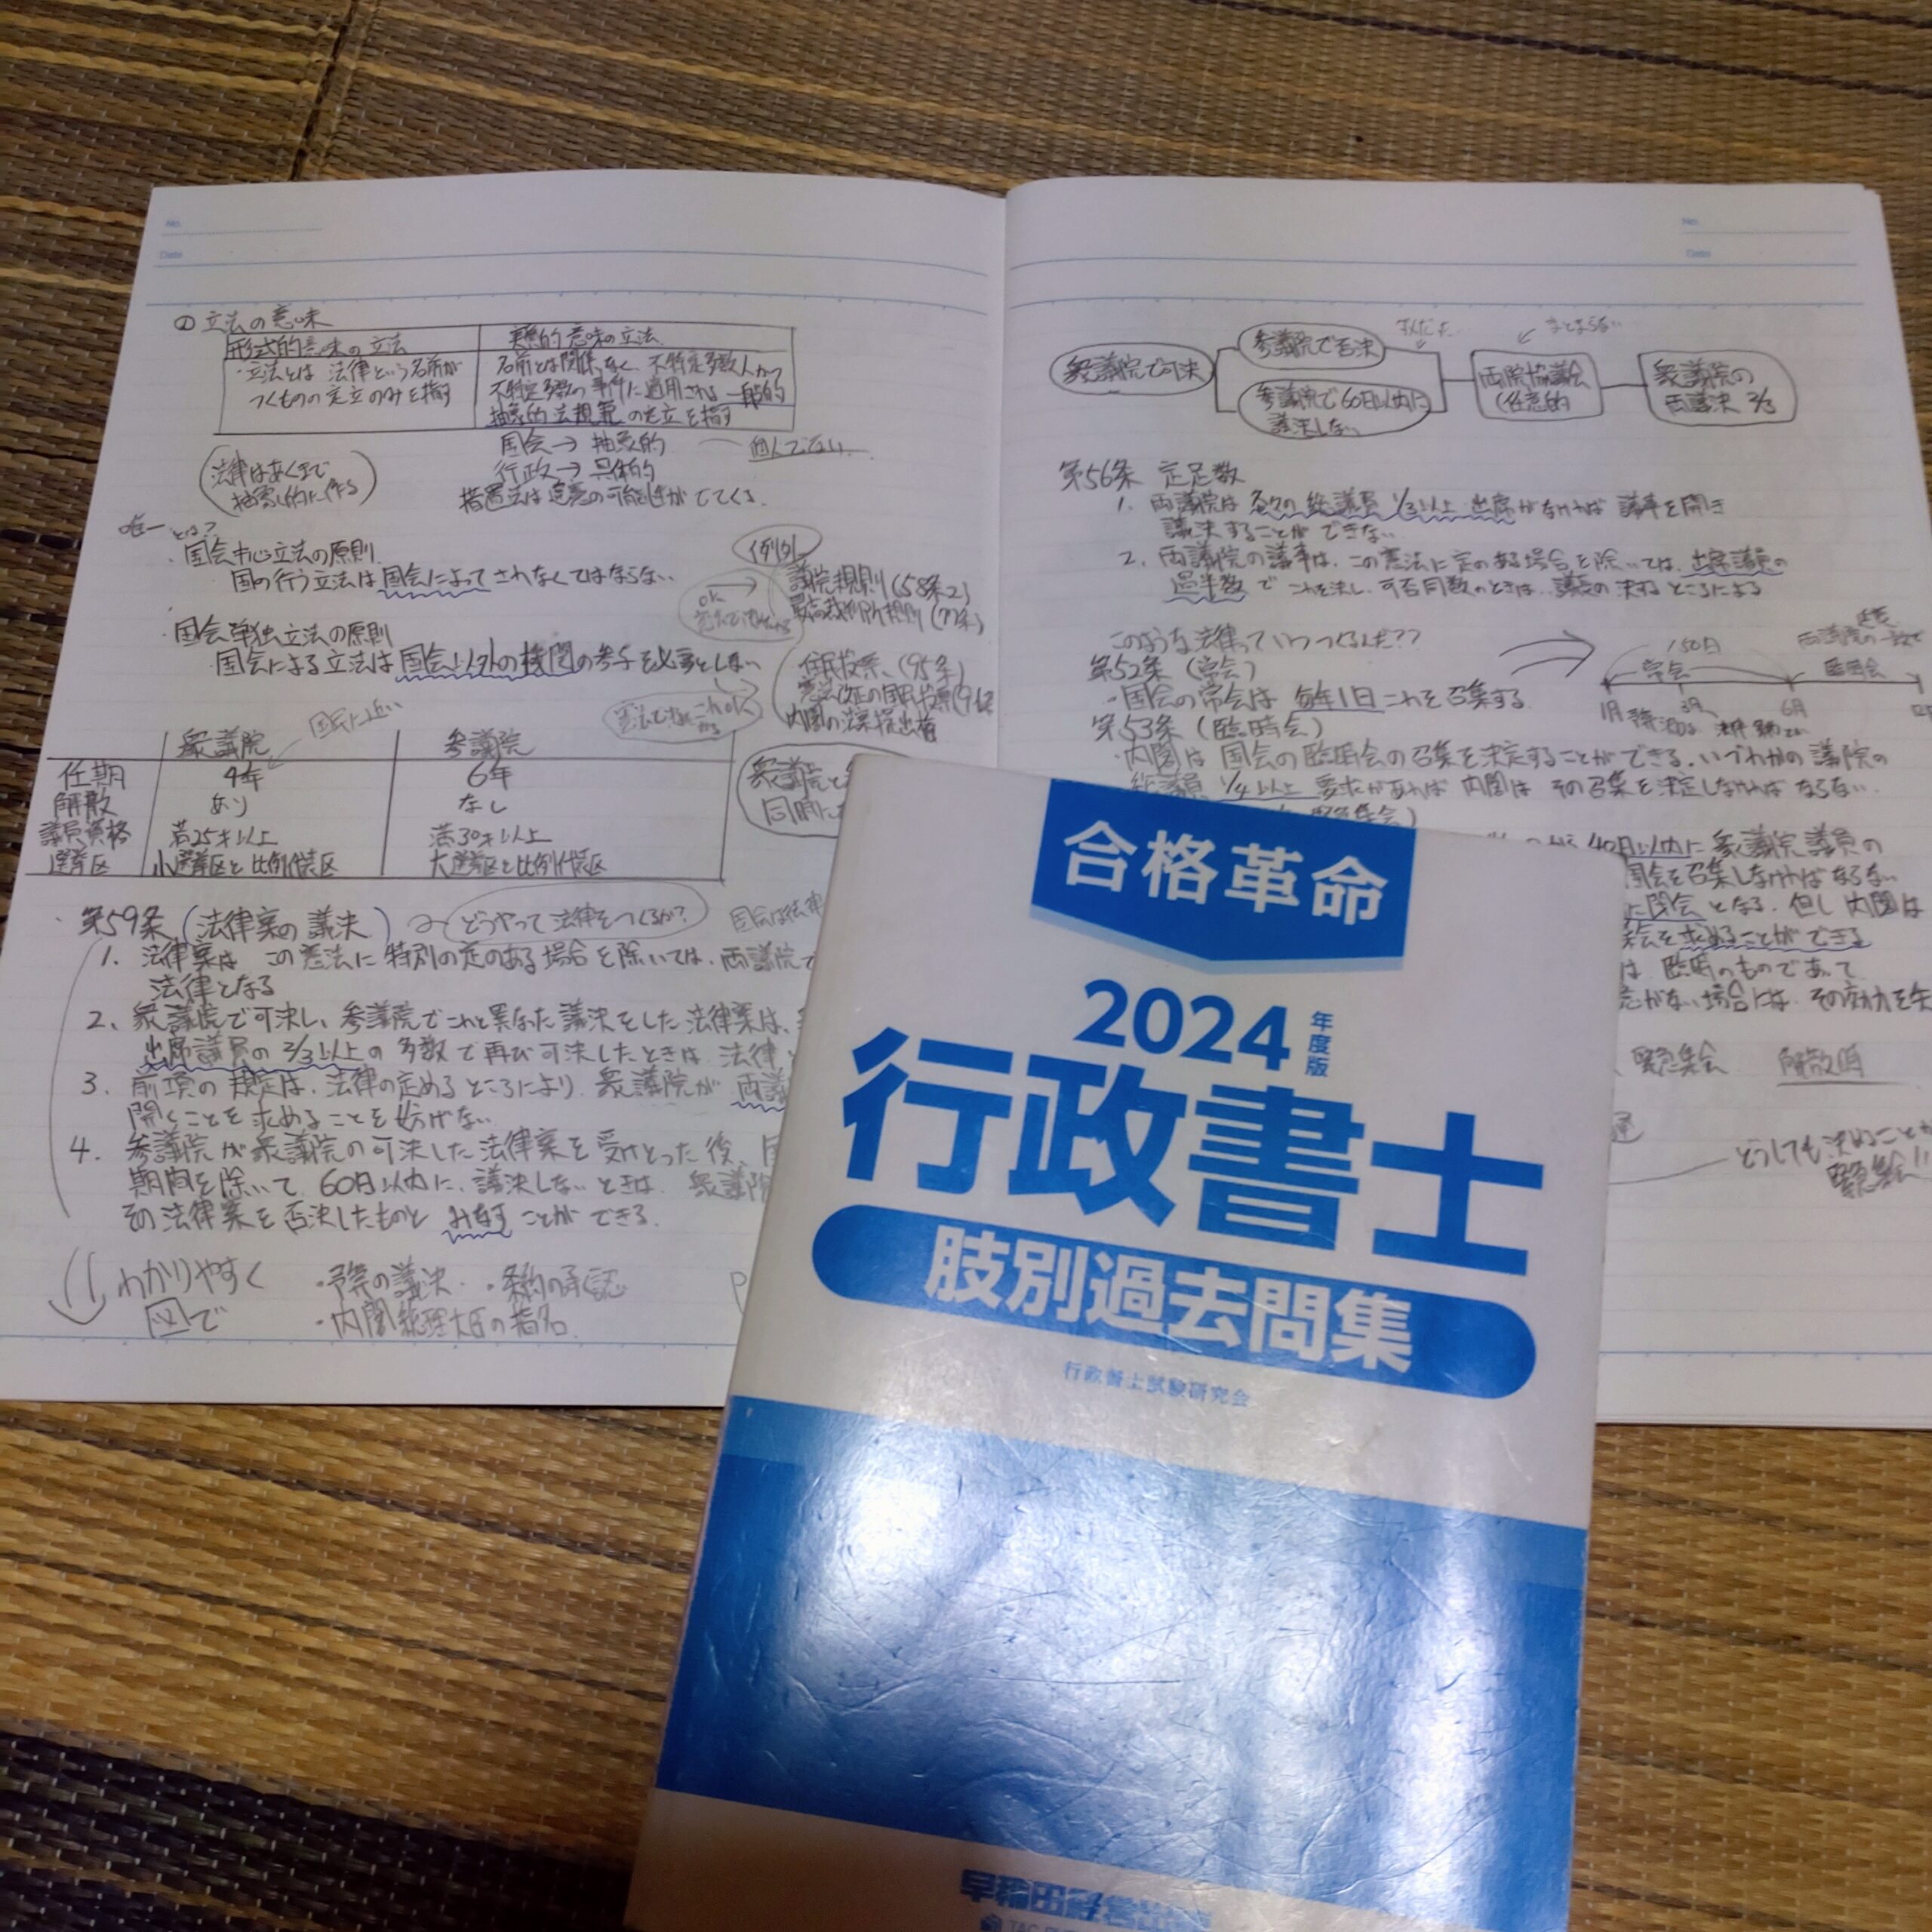 No.
Date
① 立法の意味
形式的意味の立法
・立法とは 法律という名前が
つくものの定立のみを指す
実質的意味の立法
名前とは関係なく、不特定多数人かつ
不特定多数の事件に適用される一般的
抽象的法規範の定立を指す
国会→ 抽象的
行政→ 具体的
措置法は違憲の可能性がでてくる
法律はあくまで
抽象的に作る
唯一とは?
・国会中心立法の原則
国の行う立法は国会によってされなくてはならない
例外
議院規則(58条2)
最高裁判所規則(77条)
・国会単独立法の原則
国会による立法は国会以外の機関の参与を必要としない
住民投票、(95条)
憲法改正の国民投票
内閣の法案提出権
国民に近い
衆議院 参議院
任期 4年 6年
解散 あり なし
議員資格 満25才以上 満30才以上
選挙区 小選挙区と比例代表区 大選挙区と比例代表区
衆議院と
同時に
・第59条(法律案の議決) どうやって法律をつくるか?
1. 法律案は この憲法に特別の定のある場合を除いては、両議院で
法律となる
2、衆議院で可決し、参議院でこれと異なった議決をした法律案は、
出席議員の2/3以上の多数で再び可決したときは 法律
3. 前項の規定は、法律の定めるところにより 衆議院が 両議
開くことを求めることを妨げない
4. 参議院が衆議院の可決した法律案を受けとった後、
期間を除いて 60日以内に、議決しないときは 衆議院
その法律案を否決したものと みなす ことができる.
わかりやすく
図で
・予算の議決 ・条約の承認
・内閣総理大臣の指名
No.
Date
衆議院で可決
参議院で否決
参議院で60日以内に
議決しない
まとまらない
両院協議会
(任意的
衆議院の
再議決 2/3
第56条 定足数
1. 両議院は 各々の総議員 1/3以上 出席がなければ 議事を開き
議決することができない
2. 両議院の議事は、この憲法に定のある場合を除いては、出席議員の
過半数でこれを決し、可否同数のときは、議長の決するところによる
このような法律っていつつくるんだ??
第52条(常会)
・国会の常会は 毎年1回これを召集する
150日
常会
臨時会
1月
6月
第53条(臨時会)
・内閣は 国会の臨時会の召集を決定することができる. いづれかの議院の
総議員 1/4以上 要求があれば 内閣は その召集を決定しなければならない.
40日以内に衆議院議員の
国会を召集しなければならない
に閉会となる. 但し内閣は
集会を求めることができる
は 臨時のものであって
がない場合には、その効力を失
緊急集会 解散時
どうしても決めることが
緊急集会!!
合格革命
2024年度版
行政書士
肢別過去問集
行政書士試験研究会
早稲田経営出版
TAC